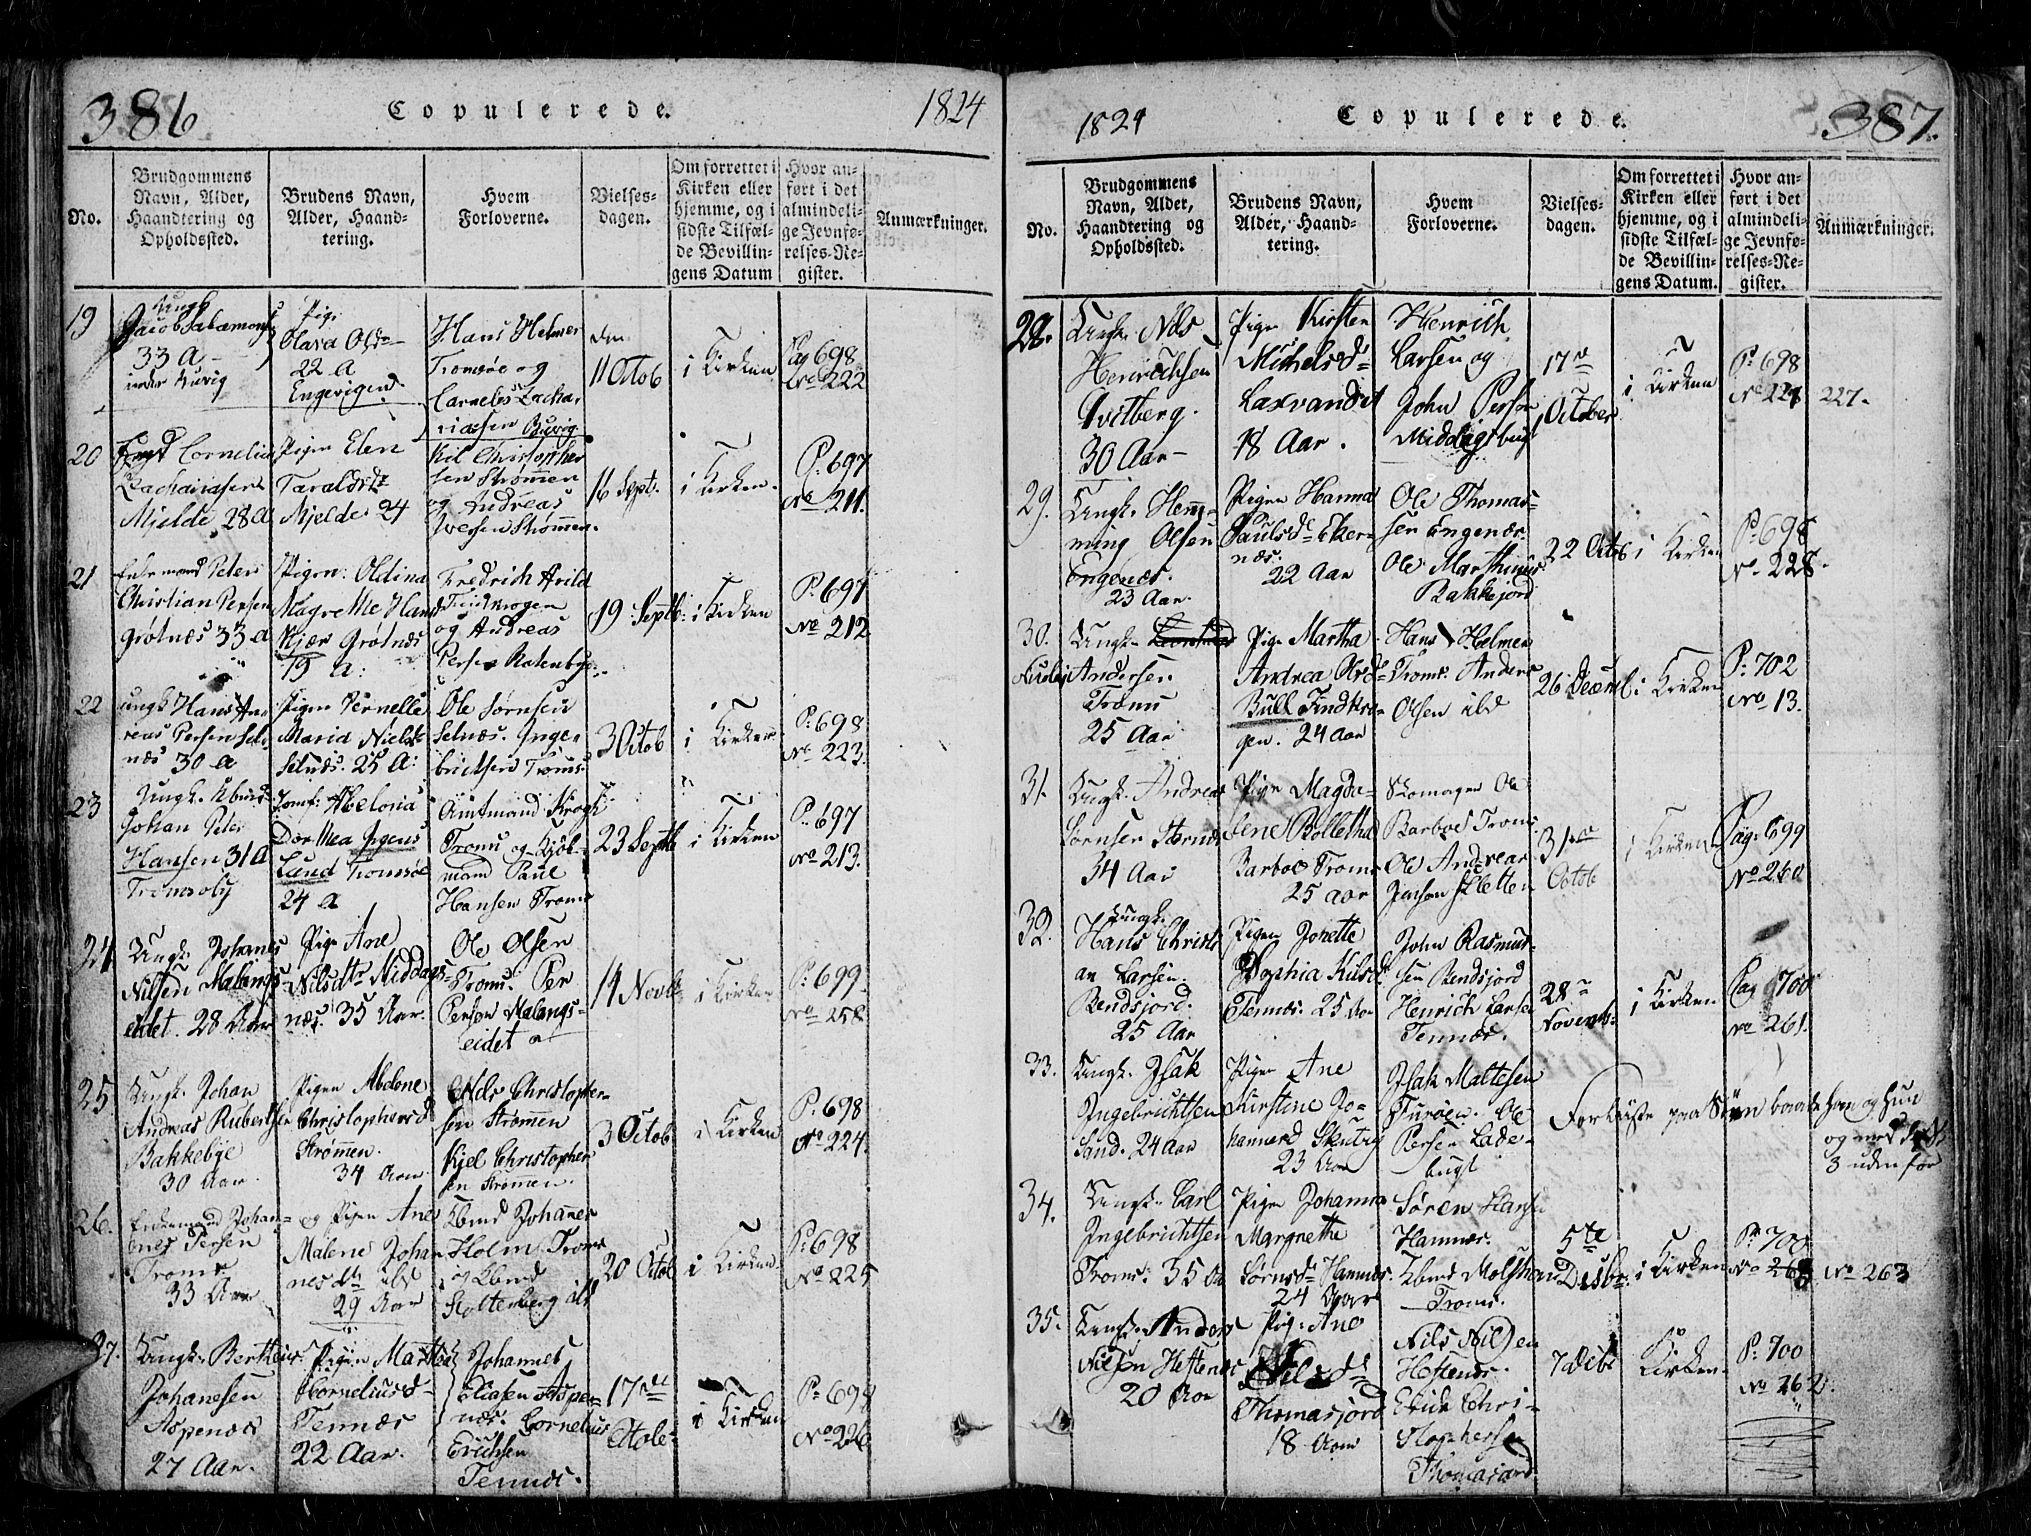 386
Copulerede.
1824
No.
Brudgommens
Navn, Alder,
Haandtering og
Opholdssted.
Brudens Navn,
Alder, Haand-
tering.
Hvem
Forloverne.
Vielses-
dagen.
Om forrettet i
Kirken eller
hjemme, og i
sidste Tilfæl-
de Bevillin-
gens Datum
Hvor an-
ført i det
almindeli-
ge Jevnfø-
relses-Re-
gister.
Anmærkninger.
19
Ungk
Jacob Salamons
33 A
Pige
Olava Ols
22 A
Engevigen
Hans Helmer
Tromsøe og
Cornelius Zacha
riasen Buvig
den
11 Octob
i Kirken
Pag 698
No 222
20
Cornelius
Zachariasen
Mjelde 28 A
Pigen Elen
Taraldsd
Mjelde 24
Kil Christopher
sen Strømmen
og Andreas
Iversen Strømmen.
16 Sept.
i Kirken.
P. 697
No 211.
21
Enkemand Peter
Christian Persen
Grøtnes 33 A
Pigen Oldina
Magrethe Hans
Kjær Grøtnes
19 A:
Fredrich Arild
Findkrogen
og Andreas
Persen
19 Septb:
i Kirken
P. 697
No 212
22
Ungk Hans An
reas Persen Sel
nes 30 A
Pigen Pernelle
Maria Nielsd
Selnes. 25 A:
Ole Sørnsen
Selnes. Inge
brictsen Troms
3 Octob
i Kirken
P. 698
No 223.
23
Ungk.
Johan Peter
Hansen 31 A
Tromsoby
Jomf: Abelona
Dorthea Ingens
Lund Tromsøe
24 A
Amtmand Krogh
Troms og Kjøb
mand Paul
Hansen Troms
23 Septb
i Kirken
P. 697
No 213.
24
Ungk. Johanes
Nilsen Malangs-
eidet. 28 Aar
Pige Ane
Nilsdtr Middags-
nes. 35 Aar.
Ole Olsen
Troms. Per
Persen Malangs-
eidet
14 Novb
i Kirken
P. 699.
No 258
25.
Ungk. Johan
Andreas Rubertsen
Bakkebye
30 Aar.
Pigen Abelone
Christophersd
Strømmen.
34 Aar
Nils Christopher-
sen Strømmen
Kjel Christopher
sen Strømen.
3 Octob
i Kirken
P. 698
No 224.
26.
Enkemand Johan-
nes Persen
Troms
33 Aar
og Pigen Ane
Malene Johan
nesdtr ibd
29 Aar
Johanes
Holm Troms
og
Stoltenberg ibd
20 Octob
i Kirken
P. 698
No 225
27.
Ungk. Bertheus
Johanesen
Aspenes
27 Aar.
Pigen Marthe
Corneliusd
Tennes
22 Aar.
Johannes
Eliasen Aspe-
nes. Cornelius
Erichsen
Tennes.
17de
i Kirken
P. 698
No 226
1824
Copulerede.
387.
No.
Brudgommens
Navn, Alder,
Haandtering og
Opholdssted.
Brudens Navn,
Alder, Haand-
tering.
Hvem
Forloverne.
Vielses-
dagen.
Om forrettet i
Kirken eller
hjemme, og i
sidste Tilfæl-
de Bevillin-
gens Datum.
Hvor an-
ført i det
almindeli-
ge Jevnfø-
relses-Re-
gister.
Anmærkninger.
28.
Ungk. Nils
Henrichsen
Qvitberg.
30 Aar
Pigen Kirsten
Michelsd
Laxvandet
18 Aar.
Henrich
Larsen og
John Persen
Middagsbugt
17de
October
i Kirken
P. 698
227.
29.
Ungk. Hen-
ning Olsen
Engenes.
23 Aar.
Pigen Hanna
Paulsd Eker-
nes.
22 Aar
Ole Thomas-
sen Engenes.
Ole Marthinus
Bakkejord
22 Octob
i Kirken
P. 698
No 228.
30.
Ungk.
Nicolai
Andersen
Troms
25 Aar
Pige Martha
Andrea Ard
Bull Findkro-
gen. 24 Aar
Hans Holmen
Troms. Anders
Olsen ibd
26 Decemb
i Kirken
P. 702
No 13.
31.
Ungk. Andreas
Sørnsen
34 Aar
Pigen Magda-
lene Bolletha
Barboe Troms
25 Aar
Skomager Ole
Barboe Troms.
Ole Andreas
Jensen Sletten
31te
Octob
i Kirken
Pag. 699
No 260
32.
Ungk.
Hans Christi
an Larsen
Bendsjord.
25 Aar
Pigen Jonette
Sophia Kilsd
Tennes. 25 Aar
John Rasmus-
sen Bendsjord
Henrich Larsen
Tennes.
28
Novemb.
i Kirken
Pag 700
No 261.
33.
Ungk. Isak
Ingebrichtsen
Sand. 24 Aar
Pigen Ane
Kirstine Jo-
hannesd
23 Aar
Isak Mathesen
Ole
Persen Lade-
bugt
Forliiste paa Søen baade han og hun
og med
3 uden for
34.
Ungk. Carl
Ingebrichtsen
Troms. 35 Aar
Pigen Johanna
Margrethe
Sørnsd Hamnes.
24 Aar
Søren Hansen
Hamnes.
Troms.
5te
Desbr.
i Kirken
P. 700
No 263
35.
Ungk. Anders
Nilsen Hestenes
20 Aar
Pige Ane
Nilsd
Thomasjord
18 Aar
Nils Nilsen
Hestenes.
Erick Chri-
stophersen
Thomasjord
7 Decbr
i Kirken.
P. 700
No 262.